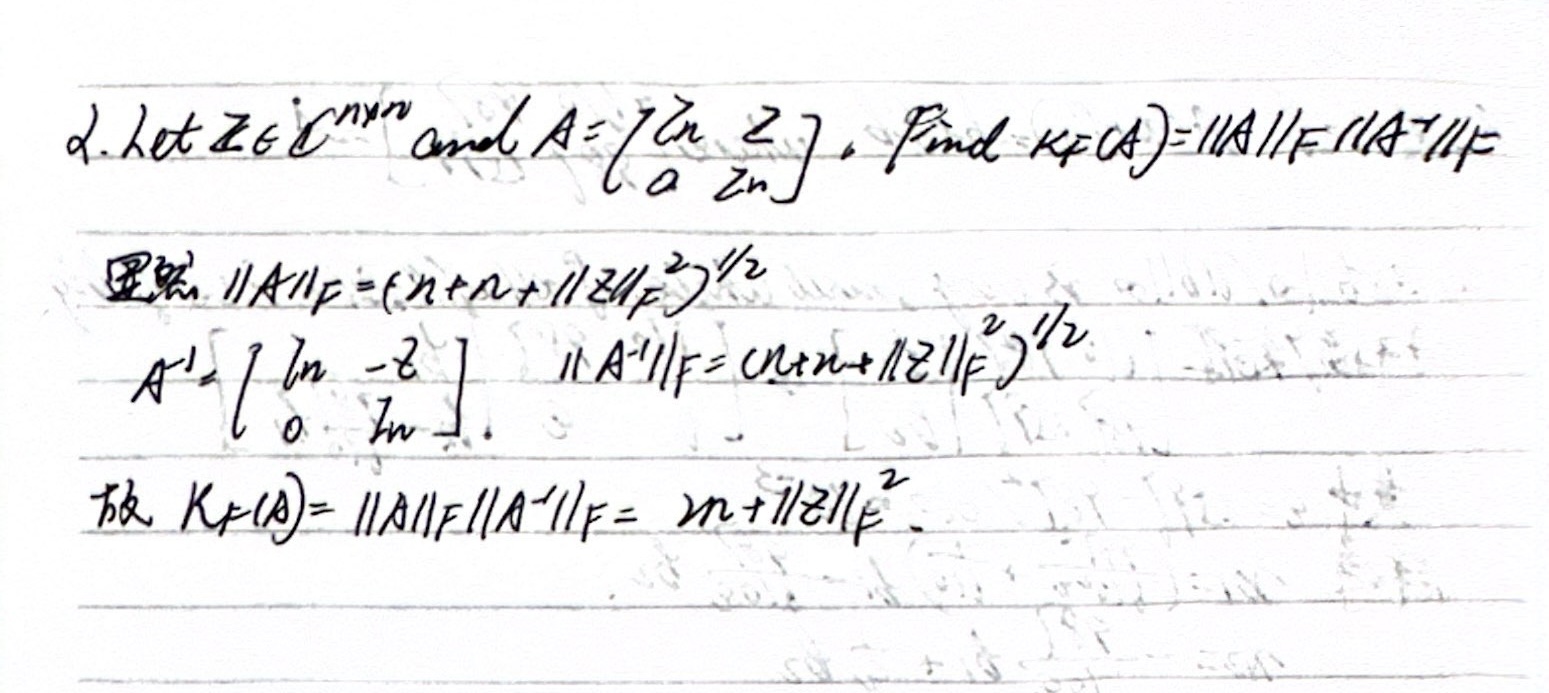 2. Let Z ∈ ℂ^{n×n} and A = [ I_n Z ; 0 I_n ]. Find κ_F(A) = ||A||_F ||A^{-1}||_F
显然 ||A||_F = (n+n+||Z||_F^2)^{1/2}
A^{-1} = [ I_n -Z ; 0 I_n ]. ||A^{-1}||_F = (n+n+||Z||_F^2)^{1/2}
故 K_F(A) = ||A||_F ||A^{-1}||_F = 2n+||Z||_F^2.